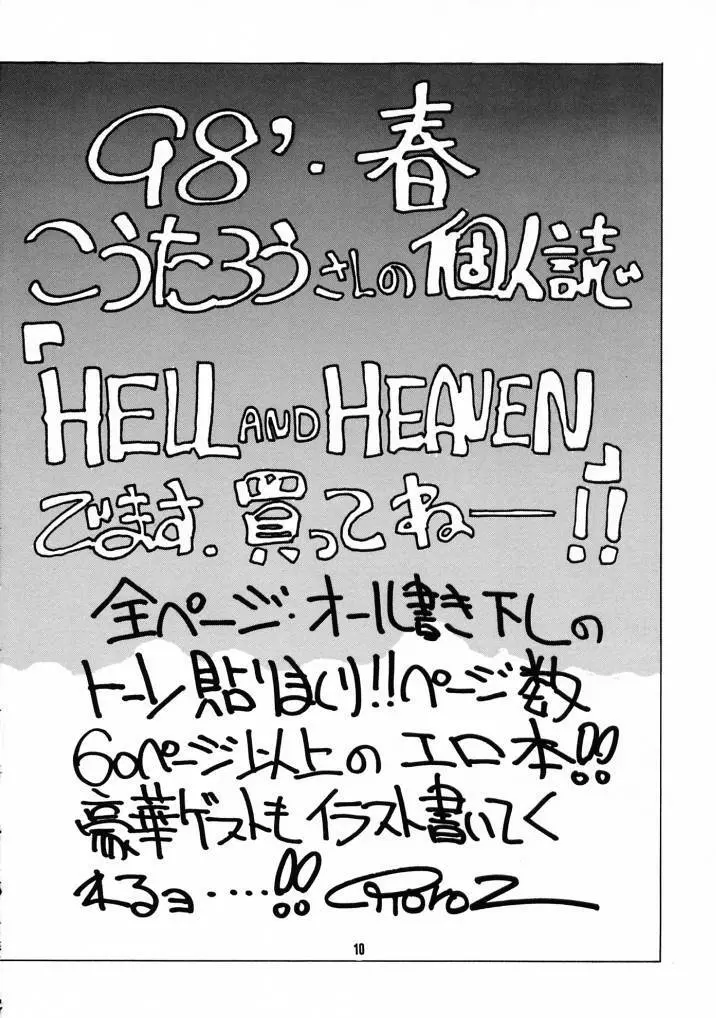 98'・春
こうたろうさんの個人誌
『HELL AND HEAVEN』
です.買ってねー!!
全ページ・オール書き下しの
トーン貼りまくり!!ページ数
60ページ以上のエロ本!!
豪華ゲストもイラスト書いてく
れるョ‥‥!!
10